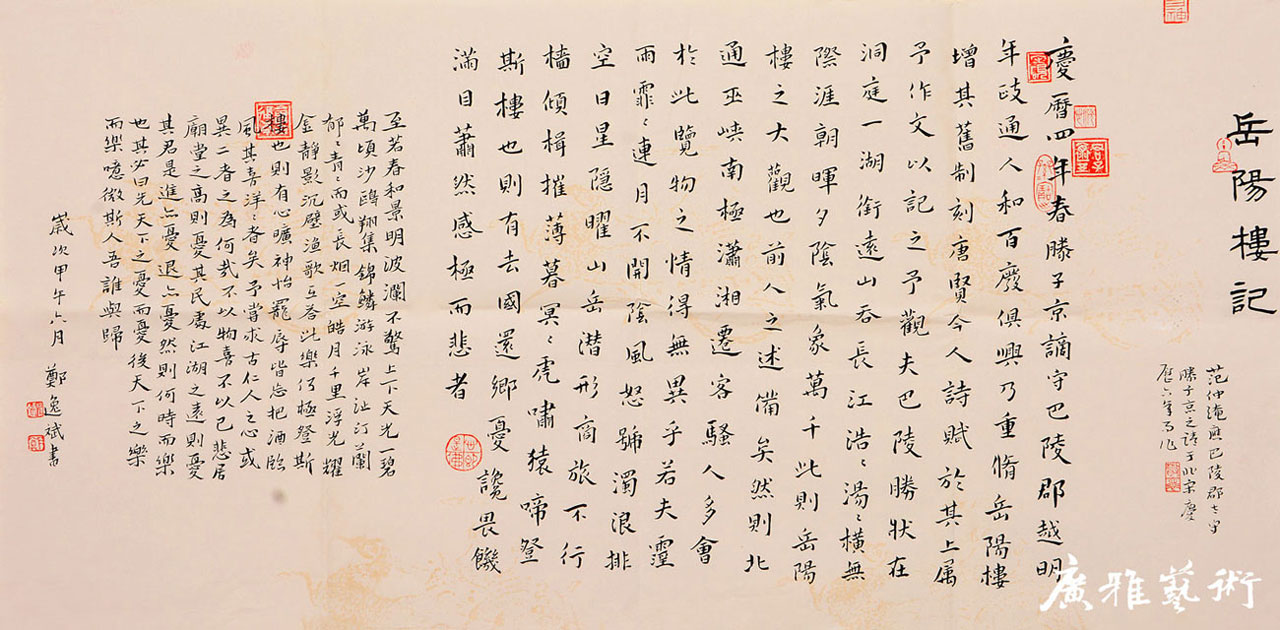 岳陽樓記
范仲淹應巴陵郡太守
滕子京之請于北宋慶
曆六年而作
慶曆四年春滕子京謫守巴陵郡越明
年政通人和百廢俱興乃重脩岳陽樓
增其舊制刻唐賢今人詩賦於其上属
予作文以記之予觀夫巴陵勝狀在
洞庭一湖銜遠山吞長江浩〻湯〻橫無
際涯朝暉夕陰氣象萬千此則岳陽
樓之大觀也前人之述備矣然則北
通巫峽南極瀟湘遷客騷人多會
於此覽物之情得無異乎若夫霪
雨霏〻連月不開陰風怒號濁浪排
空日星隱曜山岳潛形商旅不行
檣傾楫摧薄暮冥〻虎嘯猿啼登
斯樓也則有去國還鄉憂讒畏饑
滿目蕭然感極而悲者
至若春和景明波瀾不驚上下天光一碧
萬頃沙鷗翔集錦鱗游泳岸芷汀蘭
郁〻青〻而或長烟一空皓月千里浮光耀
金靜影沉璧漁歌互答此樂何極登斯
樓也則有心曠神怡寵辱皆忘把酒臨
風其喜洋〻者矣予嘗求古仁人之心或
異二者之為何哉不以物喜不以己悲居
廟堂之高則憂其民處江湖之遠則憂
其君是進亦憂退亦憂然則何時而樂
也其必曰先天下之憂而憂後天下之樂
而樂噫微斯人吾誰與歸
歲次甲午六月 鄭逸斌書
廣雅藝術